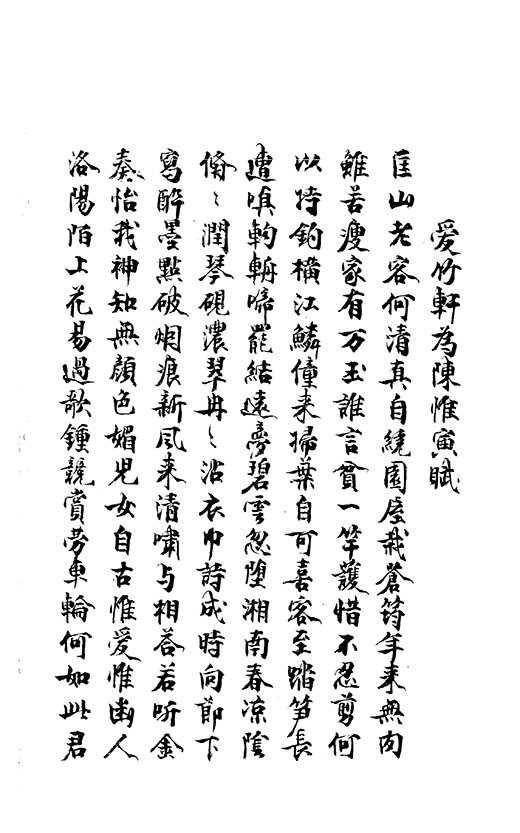 愛竹軒為陳惟寅賦
匡山老客何清真自繞園屋栽蒼筠年来無肉
雖苦瘦家有万玉誰言貧一竿護惜不忍剪何
以持釣橫江鱗僮来掃葉自可喜客至踏笋長
遭嗔軥輈啼罷結遠夢碧雲忽墮湘南春涼陰
翛〻潤琴硯濃翠冉〻沾衣巾詩成時向節下
寫醉墨點破烟痕新風来清嘯与相答若听金
奏怡我神知無顏色媚児女自古惟愛惟幽人
洛陽陌上花易過歌鍾競賞勞車輪何如此君